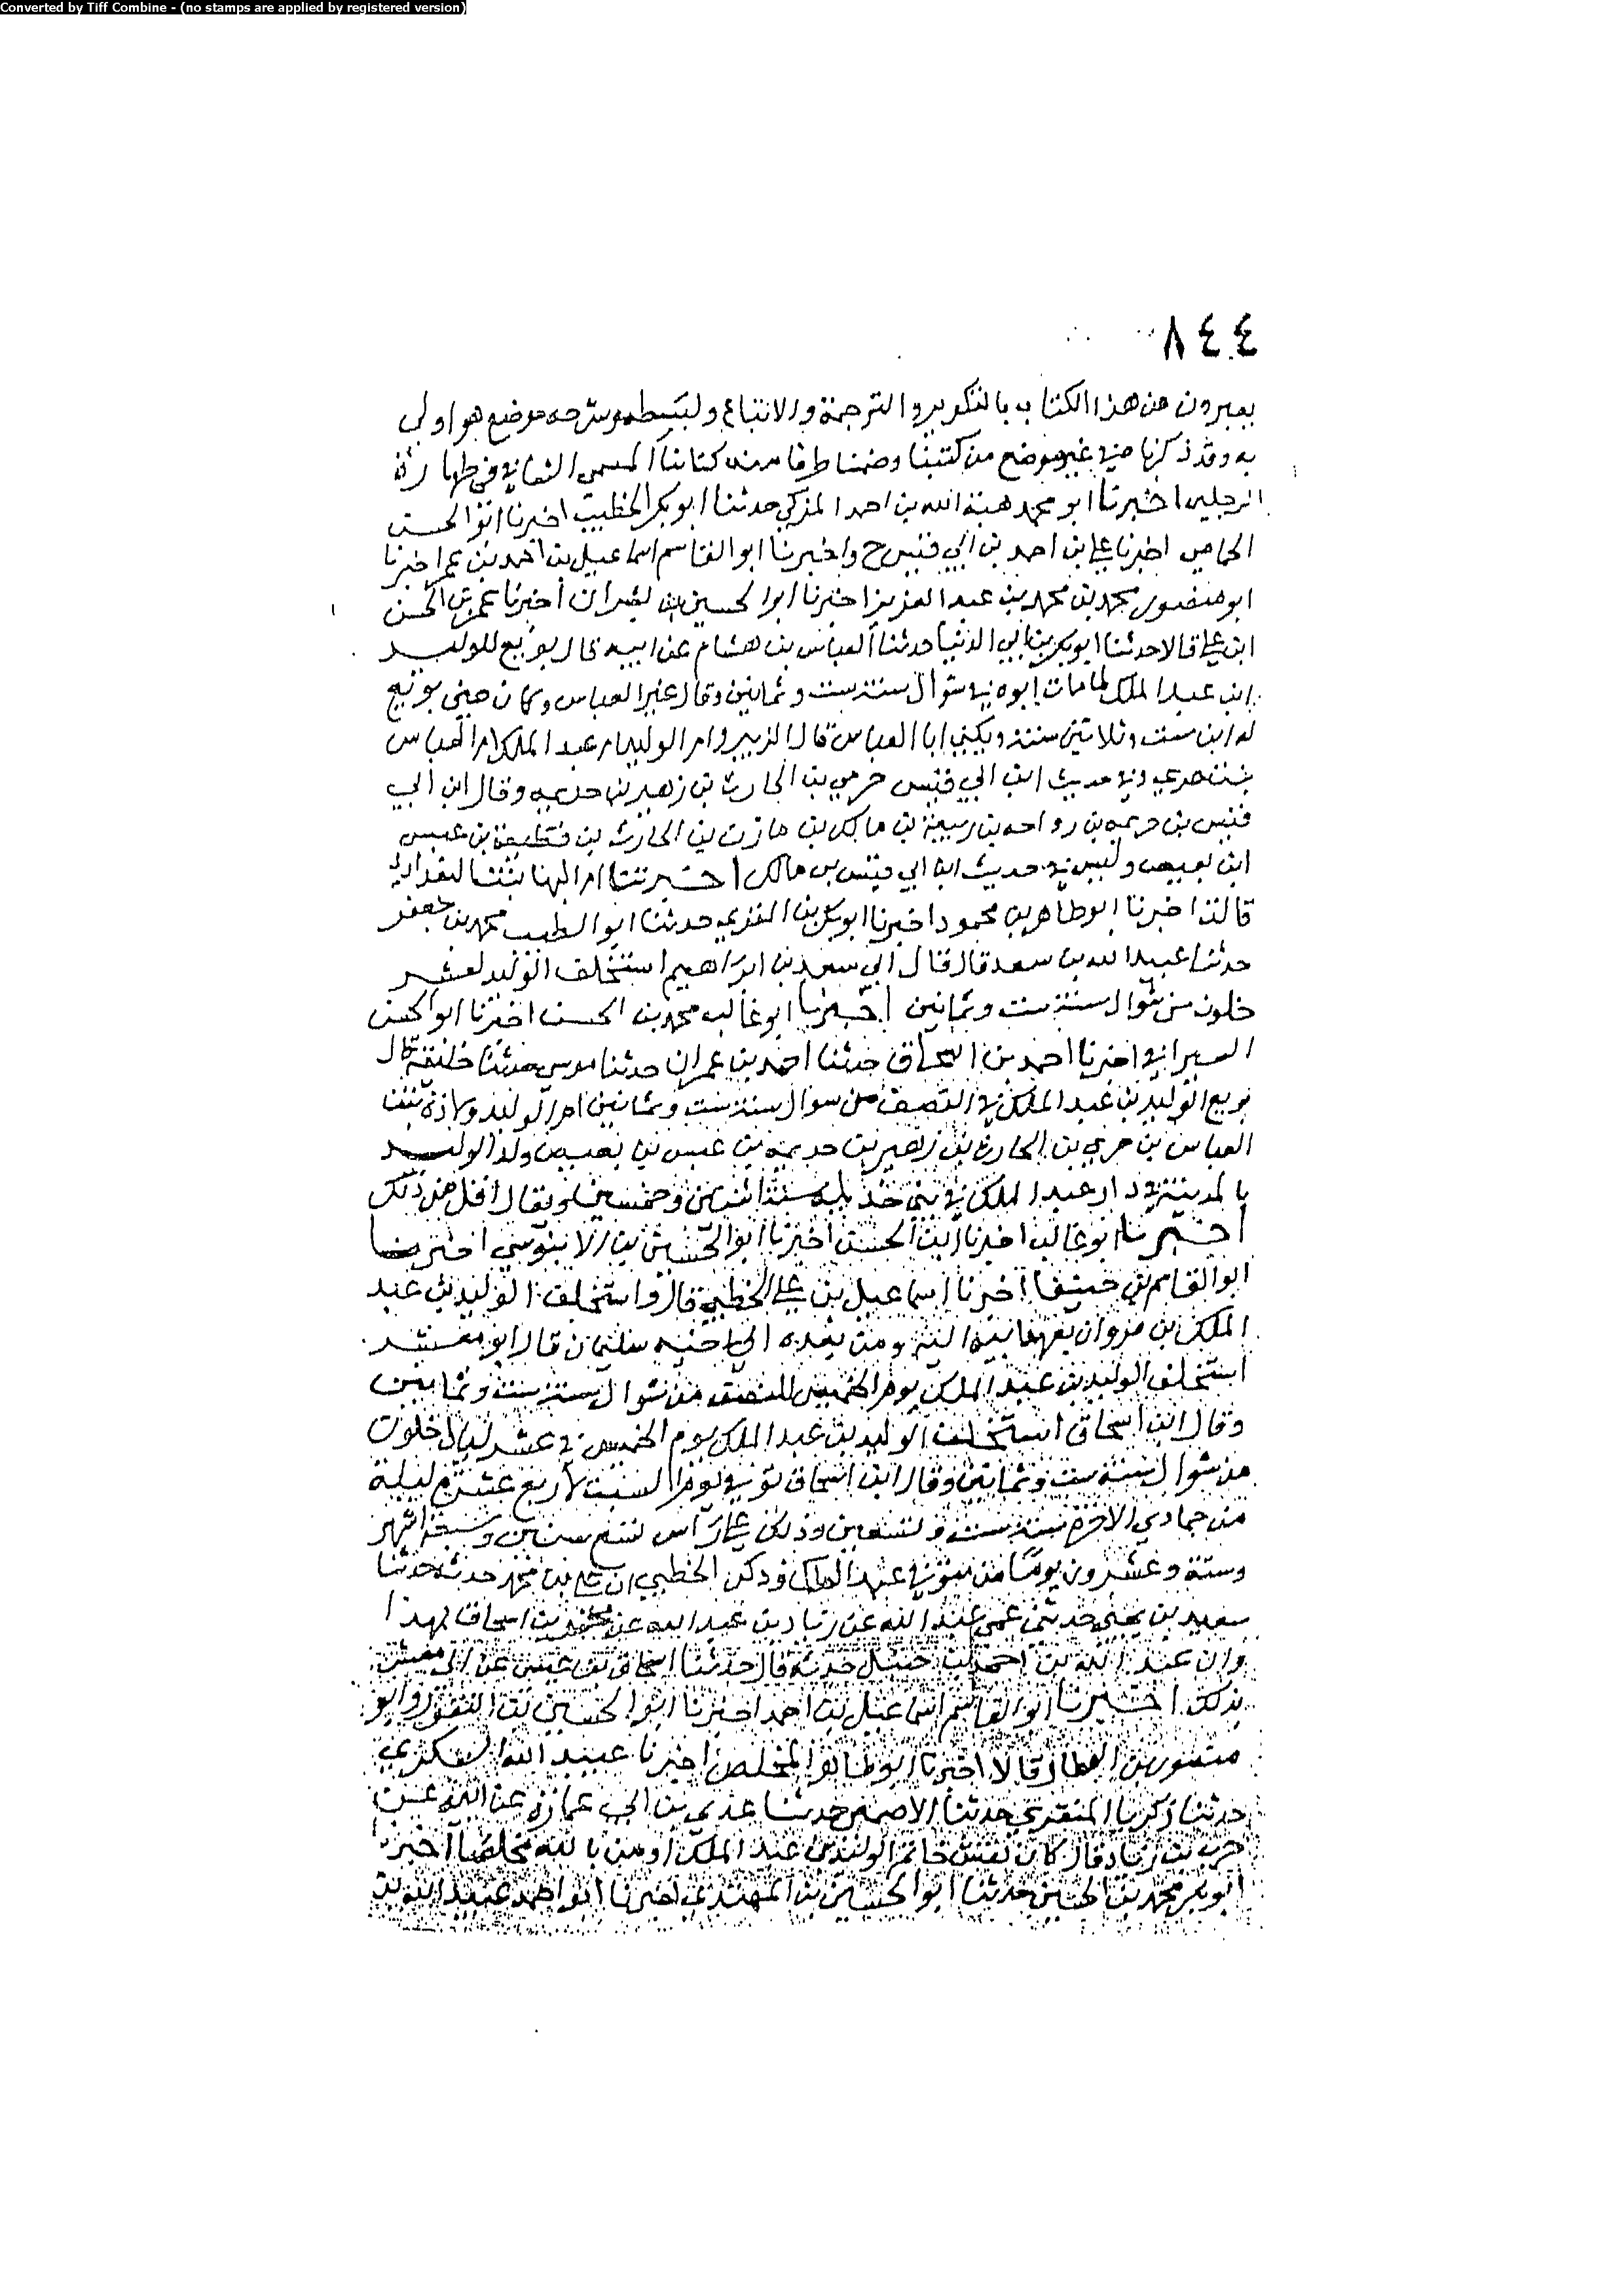 Converted by Tiff Combine - (no stamps are applied by registered version)
٨٤٤
يعبرون عن هذا الكتاب بالتكوير والترجمة والاتباع ولبسطه وشرحه موضع هو اولى
به وقد ذكرناه في غير موضع من كتبنا وضمنا طرفا منه كتابنا المسمى
الرجلين اخبرنا ابو محمد هبة الله بن احمد المزكي حدثنا ابو بكر الخطيب اخبرنا ابو الحسن
الحمامي اخبرنا علي بن احمد بن ابي قيس ح واخبرنا ابو القاسم اسماعيل بن احمد بن عمر اخبرنا
ابو منصور محمد بن محمد بن عبد العزيز اخبرنا ابو الحسين بن بشران اخبرنا عمر بن الحسن
ابن علي قالا حدثنا ابو بكر بن ابي الدنيا حدثنا العباس بن هشام عن ابيه قال بويع للوليد
ابن عبد الملك لما مات ابوه في شوال سنة ست وثمانين وقال غير العباس وكان حين بويع
له ابن ست وثلاثين سنة ويكنى ابا العباس قال الزبير وام الوليد بن عبد الملك ام العباس
بنت حري وفي حديث ابن ابي قيس حري بن الحارث بن زهير بن حديمه وقال ابن ابي
قيس بن حديمه بن رواحه بن ربيعة بن مالك بن مازن بن الحارث بن قطيعة بن عبس
ابن بعيص وليس في حديث ابن ابي قيس بن مالك اخبرتنا ام البها بنت البغدادي
قالت اخبرنا ابو طاهر بن محمود اخبرنا ابو بكر بن المقري حدثنا ابو الطيب محمد بن جعفر
حدثنا عبيد الله بن سعد قال قال ابي سعد بن ابراهيم استخلف الوليد لعشر
خلون من شوال سنة ست وثمانين اخبرنا ابو غالب محمد بن الحسن اخبرنا ابو الحسن
السيرافي اخبرنا احمد بن اسحاق حدثنا احمد بن عمران حدثنا موسى حدثنا خليفة قال
بويع الوليد بن عبد الملك في النصف من شوال سنة ست وثمانين ام الوليد ولادة بنت
العباس بن حري بن الحارث بن زهير بن حديمة بن عبس بن بعيص ولد الوليد
بالمدينة في دار عبد الملك في بني حديله سنة اثنتين وخمسين ويقال اقل من ذلك
اخبرنا ابو غالب اخبرنا ابن الحسن اخبرنا ابو الحسين بن الابنوسي اخبرنا
ابو القاسم بن حنيفا اخبرنا اسماعيل بن علي الخطبي قال واستخلف الوليد بن عبد
الملك بن مروان بعهد ابيه اليه ومن بعده الى اخيه سليمان قال ابو معشر
استخلف الوليد بن عبد الملك يوم الخميس للنصف من شوال سنة ست وثمانين
وقال ابن اسحاق استخلف الوليد بن عبد الملك يوم الخميس في عشر ليال خلون
من شوال سنة ست وثمانين وقال ابن اسحاق توفي يوم السبت لاربع عشرة ليلة
من جمادي الاخرة سنة ست وتسعين وذلك على راس تسع سنين وسبعة اشهر
وستة وعشرون يوما من متوفى عبد الملك وذكر الخطبي ان علي بن محمد حدثه حدثنا
سعيد بن يحيى حدثني عمي عبد الله عن زياد بن عبد الله عن محمد بن اسحاق بهذا
وان عبد الله بن احمد بن حنبل حدثه قال حدثنا اسحاق بن عيسى عن ابي معشر
بذلك اخبرنا ابو القاسم اسماعيل بن احمد اخبرنا ابو الحسين بن النقور وابو
منصور بن العطار قالا اخبرنا ابو طاهر المخلص اخبرنا عبيد الله السكري
حدثنا زكريا المنقري حدثنا الاصمعي حدثنا عدي بن ابي عمارة عن ابيه عن
حرب بن زياد قال كان نقش خاتم الوليد بن عبد الملك اومن بالله مخلصا اخبرنا
ابو بكر محمد بن الحسين حدثنا ابو الحسين بن المهتدي اخبرنا ابو احمد عبيد الله بن